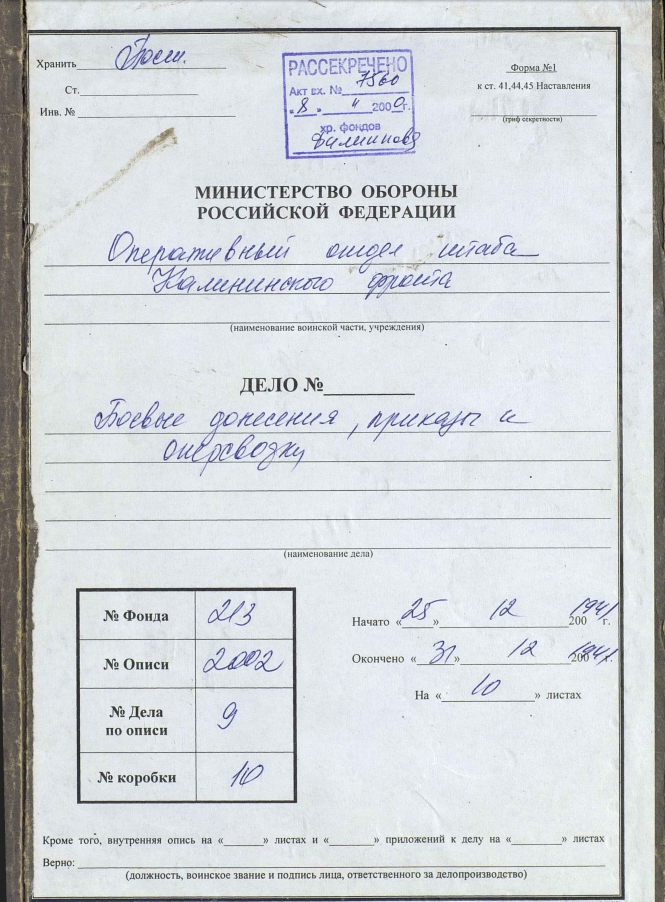 Хранить Пост.
Ст.
Инв. №
РАССЕКРЕЧЕНО
Акт вх. № 7560
"8" " 2000г.
хр. фондов
Форма №1
к ст. 41,44,45 Наставления
(гриф секретности)
МИНИСТЕРСТВО ОБОРОНЫ
РОССИЙСКОЙ ФЕДЕРАЦИИ
Оперативный отдел штаба
Калининского фронта
(наименование воинской части, учреждения)
ДЕЛО №
Боевые донесения, приказы и
оперсводки
(наименование дела)
№ Фонда 213
№ Описи 2002
№ Дела
по описи 9
№ коробки 10
Начато «25» 12 1941 200 г.
Окончено «31» 12 1941 200 г.
На «10» листах
Кроме того, внутренняя опись на « » листах и « » приложений к делу на « » листах
Верно:
(должность, воинское звание и подпись лица, ответственного за делопроизводство)